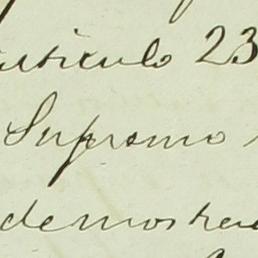 articulo 23
Supremo
demostra